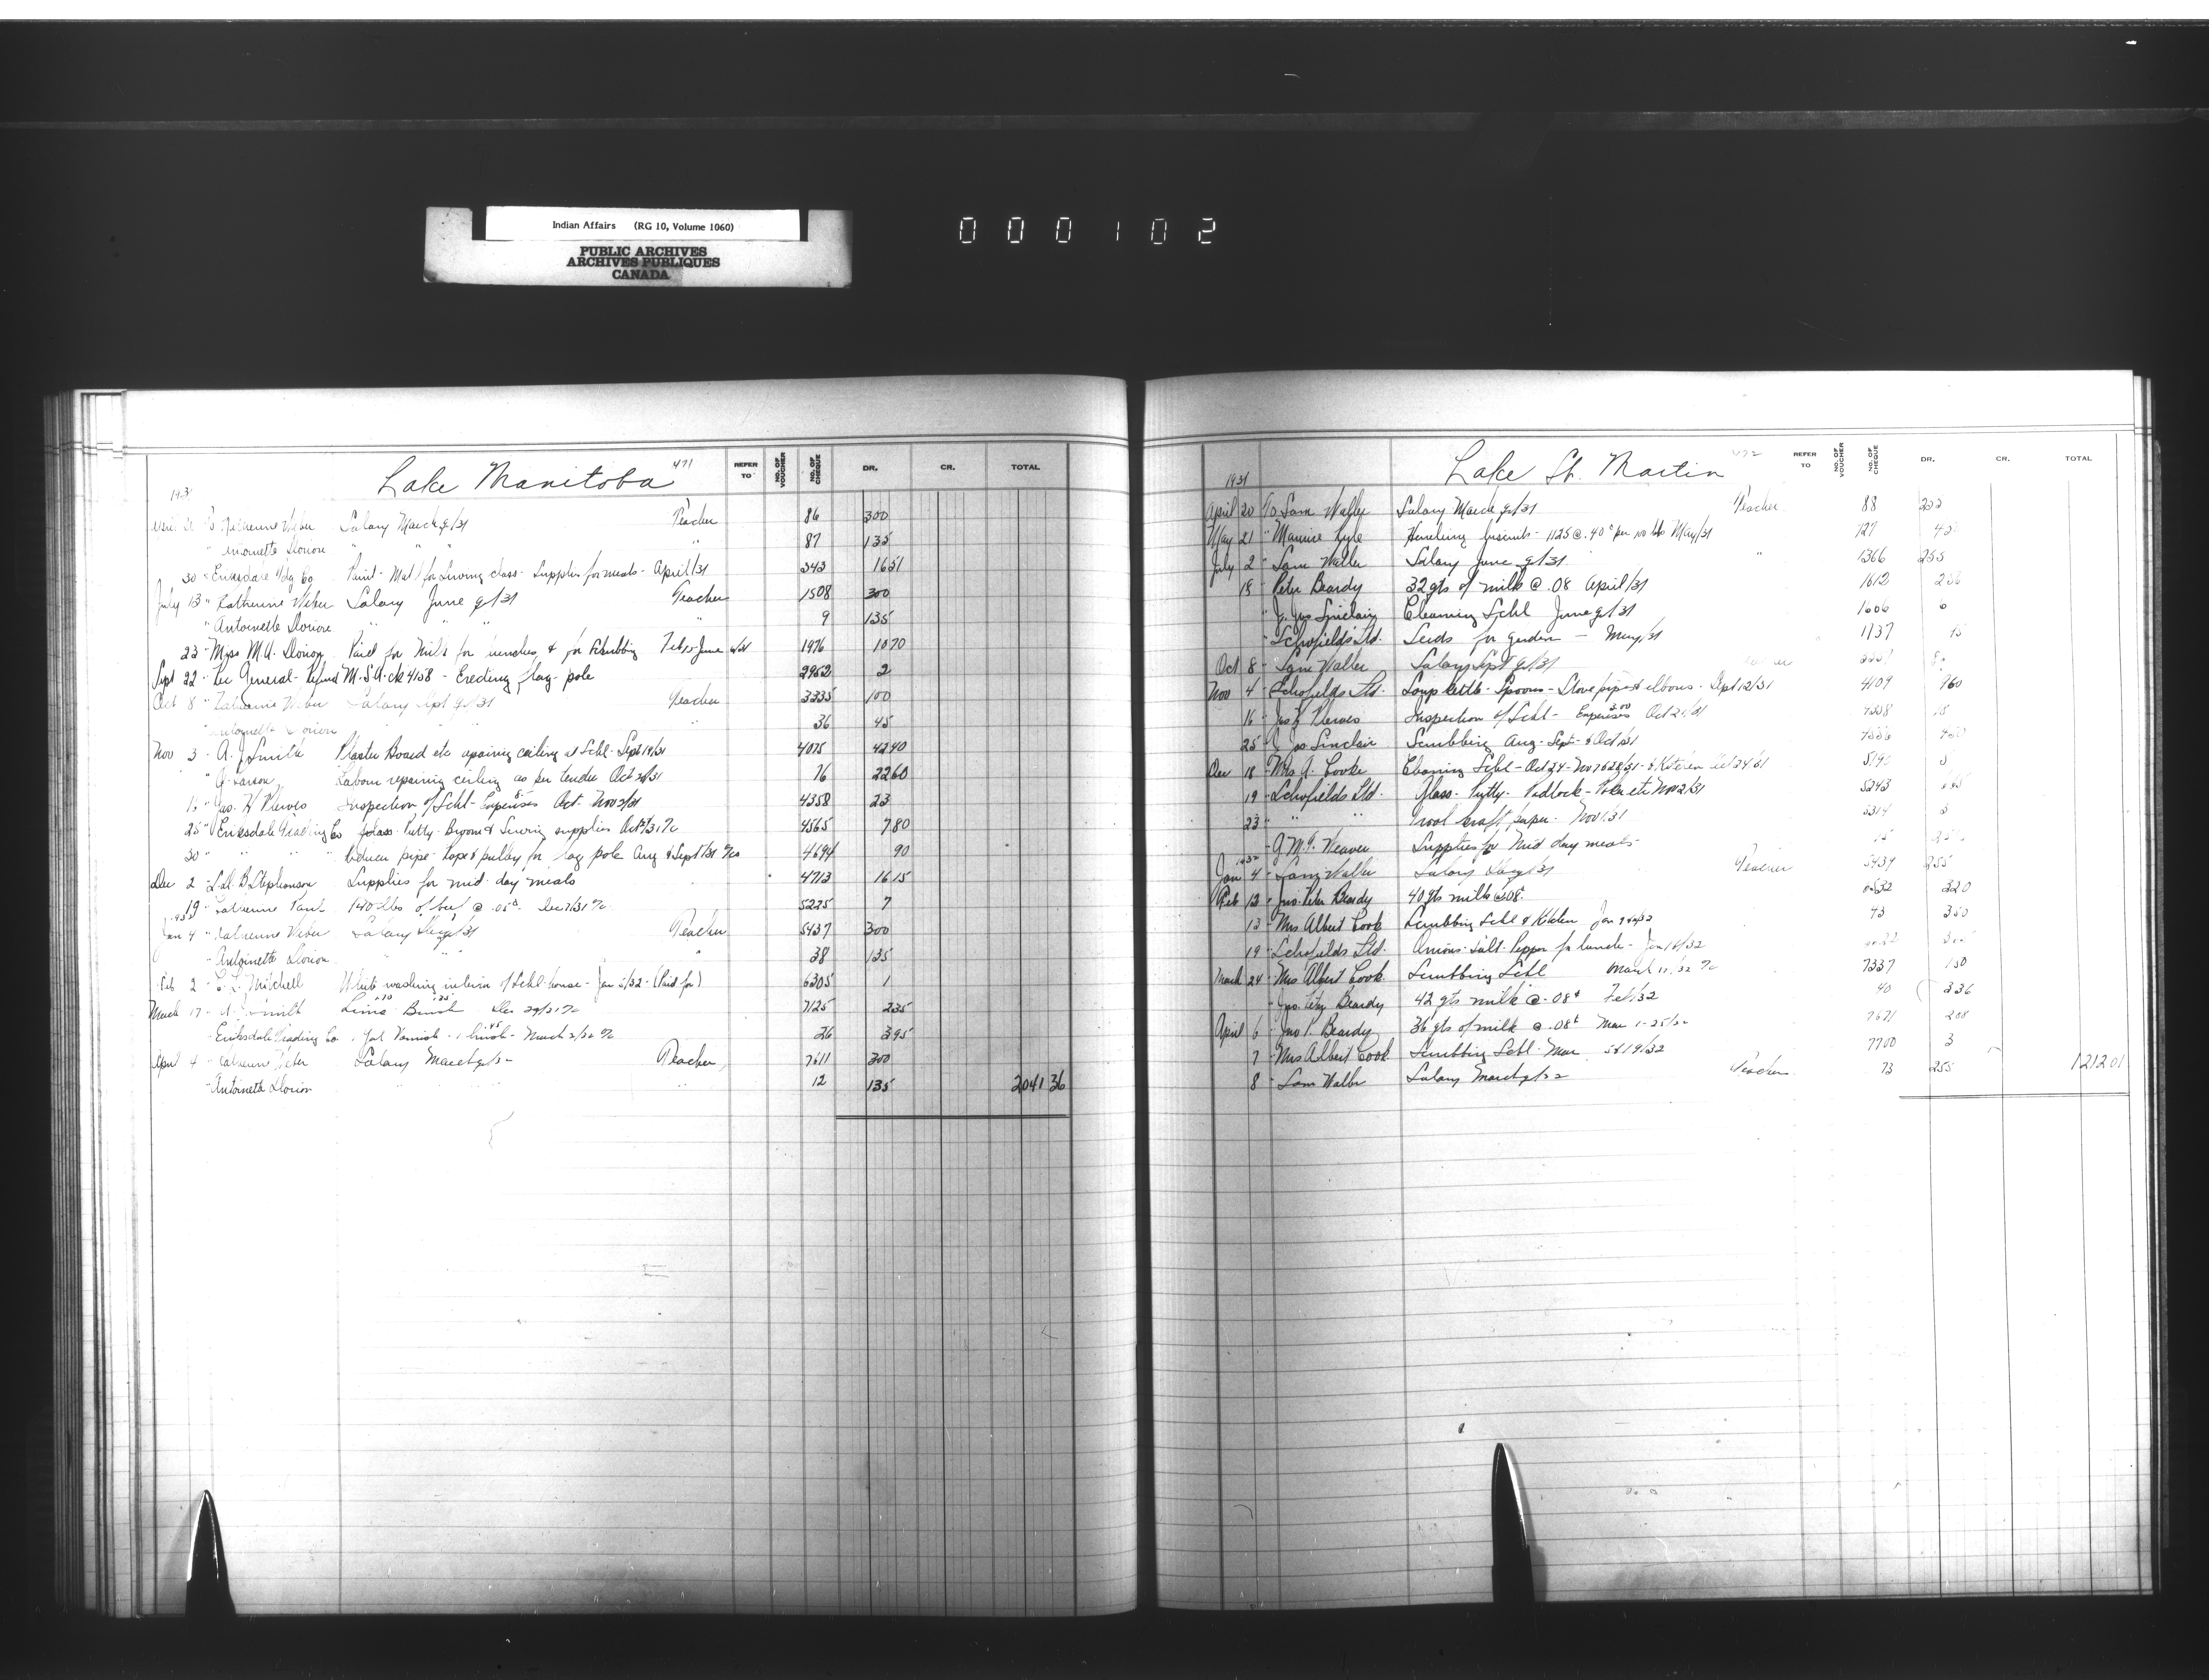 Indian Affairs (RG 10, Volume 1060)
PUBLIC ARCHIVES
ARCHIVES PUBLIQUES
CANADA
000102
Lake Manitoba 471
REFER TO NO. OF VOUCHER NO. OF CHEQUE DR. CR. TOTAL
Salary March q/31 Teacher 86 300
" Antoinette Dorion " " " 87 135
30 " Eriksdale Paint - Mat'l for Sewing class - Supplies for meals - April/31 343 1651
July 13 " Katherine Weber Salary June q/31 Teacher 1508 300
" Antoinette Dorion " " " 9 135
23 " Miss M.A. Dorion Paid for Milk for lunches, & for Scrubbing Feb 15-June 1976 1070
Sept 22 " Rec General - Refund M.S.A. ck 4158 - Erecting flag pole 2952 2
Oct 8 " Katherine Weber Salary Sept q/31 Teacher 3335 100
" Antoinette Dorion " 36 45
Nov 3 " A. J. Smith Plaster Board etc repairing ceiling at Schl - Sept 19/31 4075 4240
" G. Larson Labour repairing ceiling as per tender Oct 31 76 2260
Jas. H. Inspection of Schl - Expenses Oct - Nov 31 4358 23
25 " Eriksdale Trading Co Glass - Putty - Broom & Sewing supplies Oct 31 4565 780
30 " " " pipe - Rope & pulley for flag pole Aug & Sept/31 4694 90
Dec 2 " B. Stephenson Supplies for mid-day meals 4713 1615
19 " Katherine 140 lbs of beef @ .05¢ Dec 31 5225 7
Jan 4 " Katherine Weber Salary Dec q/31 Teacher 5437 300
" Antoinette Dorion " " 38 135
Feb 2 " L. Mitchell White washing interior of Schl house - Jan 5/32 - (Paid for) 6305 1
March 17 " A. J. Smith Lime Brush Dec 29/31 7125 235
" Eriksdale Trading Co 1 gal Varnish - 1 brush - March 2/32 26 395
April 4 " Katherine Weber Salary March q/32 Teacher 7611 300
" Antoinette Dorion " " " 12 135 2041 36
Lake St. Martin 472
REFER TO NO. OF VOUCHER NO. OF CHEQUE DR. CR. TOTAL
1931
April 20 To Sam Waller Salary March q/31 Teacher 88
May 21 " Maurice biscuits - 1125 @ .40¢ per 100 lbs May/31 727
July 2 " Sam Waller Salary June q/31 " 1366 255
18 " Peter Beardy 32 qts of milk @ .08 April/31 1612
" J. Jas Sinclair Cleaning Schl June q/31 1606 6
" Schofields Ltd. Seeds for garden - May/31
Oct 8 " Sam Waller Salary Sept q/31
Nov 4 " Schofields Ltd. Soup kettle - Spoons - Stove pipes & elbows - Sept 12/31 4109 960
16 " Jas H. Inspection of Schl - Expenses 3.00 Oct 31
25 " J. Jas Sinclair Scrubbing Aug - Sept - & Oct 31
Dec 18 " Mrs A. Cooke Cleaning Schl - Oct 24 - Nov 7 & 28/31 - & Kitchen Oct 24/31
19 " Schofields Ltd. Glass - Putty - Padlock - Poker etc Nov 2/31 5243
23 " " " kraft paper - Nov 31 5314
" Weaver Supplies for Mid day meals
1932
Jan 4 " Sam Waller Salary Dec q/31 Teacher 5434 255
Feb 12 " Jno. Peter Beardy 40 qts milk @ .08 320
13 " Mrs Albert Cook Scrubbing Schl & Kitchen Jan 43 350
19 " Schofields Ltd. Onions - Salt - Pepper for lunch - Jan 16/32
March 24 " Mrs Albert Cook Scrubbing Schl March 7337 150
" Jno. Peter Beardy 42 qts milk @ .08¢ Feb/32 40 336
April 6 " Jno P. Beardy 36 qts of milk @ .08¢ Mar 1-25/32 7671 288
7 " Mrs Albert Cook Scrubbing Schl - Mar 5 & 19/32 7700 3
8 " Sam Waller Salary March q/32 Teacher 73 255 1212 01